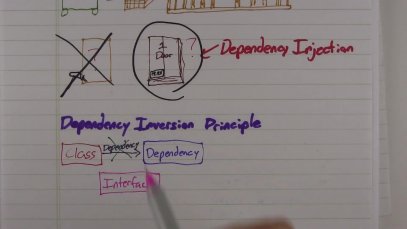 ?
1
Door
?
Dependency Injection
Dependency Inversion Principle
Class
Dependency
Dependency
Interface